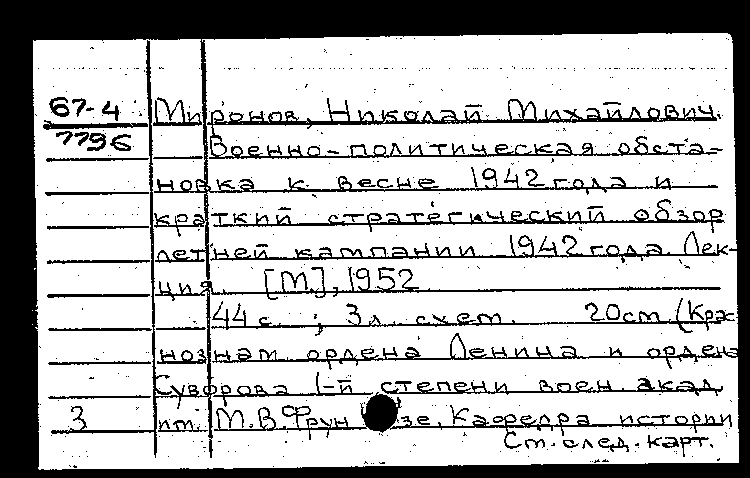 67-4 Миронов, Николай Михайлович.
7796 Военно-политическая обста-
новка к весне 1942 года и
краткий стратегический обзор
летней кампании 1942 года. Лек-
ция. [М.], 1952
44 с. ; 3 л. схем. 20см (Кра-
нознам. ордена Ленина и ордена
Суворова 1-й степени воен. акад.
3 им. М.В.Фрунзе. Кафедра истории
См. след. карт.